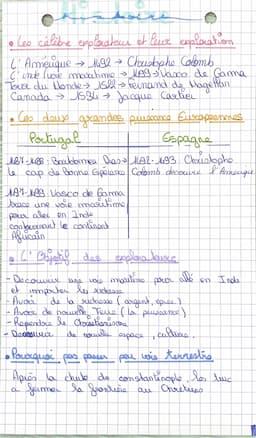 Histoire
• Les célèbre explorateur et leur exploration
L'Amérique → 1492 → Christophe Colomb
L'inde (voie maritime → 1499 → Vasco de Gama
Tour du Monde → 1522 → Fernand de Magellan
Canada → 1534 → Jacque Cartier
• Les deux grandes puissance Européennes
Portugal
1487-1488 : Dias →
le cap de Bonne Espérance
1497-1499 Vasco de Gama
voie maritime
pour aller en Inde
contournant le continent
Africain
Espagne
1492-1493 Christophe
Colomb découvre l'Amérique
• L'Objectif des explorateurs
- Découvrir une voie maritime pour allé en Inde
et importer les
- Avoir de la richesse (argent, épice)
- Avoir de nouvelle Terre (la puissance)
- Répendre le Christianisme
- Découvrir de nouvelle espace, culture.
• Pourquoi pas passer par voie terrestre
Après la chute de constantinople, les turc
a fermer la frontière au Chrétiens